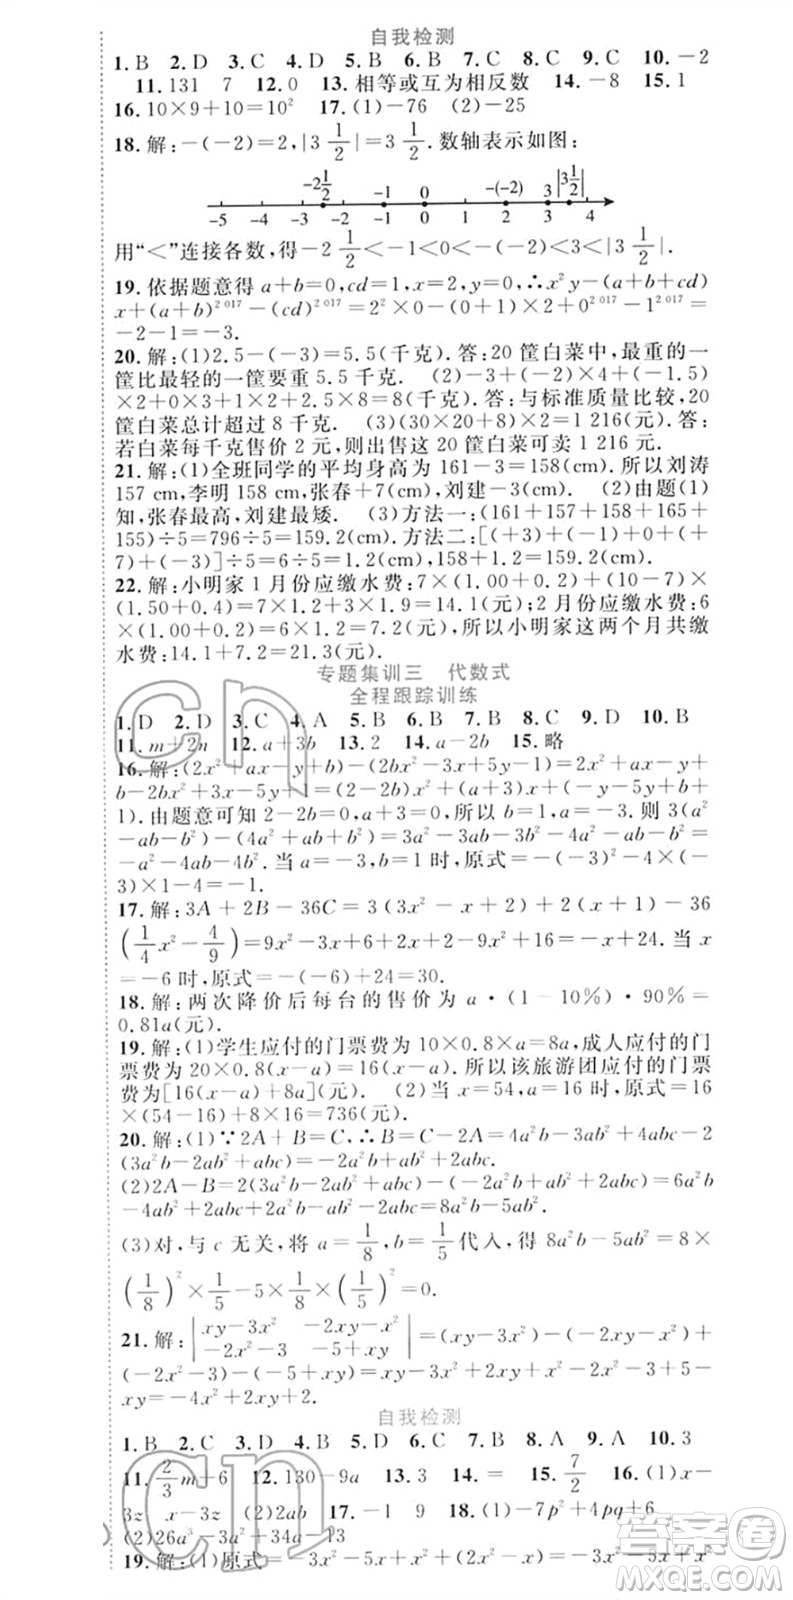 自我检测
1. B 2. D 3. C 4. D 5. B 6. B 7. C 8. C 9. C 10. －2
11. 131 7 12. 0 13. 相等或互为相反数 14. －8 15. 1
16. 10×9＋10＝10² 17. (1)－76 (2)－25
18. 解:－(－2)＝2,|3 1/2|＝3 1/2. 数轴表示如图:
－2 1/2 －1 0 －(－2) 3 |3 1/2|
－5 －4 －3 －2 －1 0 1 2 3 4
用“＜”连接各数,得－2 1/2＜－1＜0＜－(－2)＜3＜|3 1/2|.
19. 依据题意得 a＋b＝0,cd＝1,x＝2,y＝0,∴x²y－(a＋b＋cd)
x＋(a＋b)²⁰¹⁷－(cd)²⁰¹⁷＝2²×0－(0＋1)×2＋0²⁰¹⁷－1²⁰¹⁷＝
－2－1＝－3.
20. 解:(1)2.5－(－3)＝5.5(千克). 答:20 筐白菜中,最重的一
筐比最轻的一筐要重 5.5 千克. (2)－3＋(－2)×4＋(－1.5)
×2＋0×3＋1×2＋2.5×8＝8(千克). 答:与标准质量比较,20
筐白菜总计超过 8 千克. (3)(30×20＋8)×2＝1 216(元). 答:
若白菜每千克售价 2 元,则出售这 20 筐白菜可卖 1 216 元.
21. 解:(1)全班同学的平均身高为 161－3＝158(cm). 所以刘涛
157 cm,李明 158 cm,张春＋7(cm),刘建－3(cm). (2)由题(1)
知,张春最高,刘建最矮. (3)方法一:(161＋157＋158＋165＋
155)÷5＝796÷5＝159.2(cm). 方法二:[(＋3)＋(－1)＋0＋(＋
7)＋(－3)]÷5＝6÷5＝1.2(cm),158＋1.2＝159.2(cm).
22. 解:小明家 1 月份应缴水费:7×(1.00＋0.2)＋(10－7)×
(1.50＋0.4)＝7×1.2＋3×1.9＝14.1(元);2 月份应缴水费:6
×(1.00＋0.2)＝6×1.2＝7.2(元),所以小明家这两个月共缴
水费:14.1＋7.2＝21.3(元).
专题集训三 代数式
全程跟踪训练
1. D 2. D 3. C 4. A 5. B 6. B 7. C 8. B 9. D 10. B
11. m＋2n 12. a＋3b 13. 2 14. a－2b 15. 略
16. 解:(2x²＋ax－y＋b)－(2bx²－3x＋5y－1)＝2x²＋ax－y＋
b－2bx²＋3x－5y＋1＝(2－2b)x²＋(a＋3)x－6y＋(b＋
1). 由题意可知 2－2b＝0,a＋3＝0,所以 b＝1,a＝－3. 则 3(a²
－ab－b²)－(4a²＋ab＋b²)＝3a²－3ab－3b²－4a²－ab－b²＝
－a²－4ab－4b². 当 a＝－3,b＝1 时,原式＝－(－3)²－4×(－
3)×1－4＝－1.
17. 解:3A＋2B－36C＝3(3x²－x＋2)＋2(x＋1)－36
(1/4x²－4/9)＝9x²－3x＋6＋2x＋2－9x²＋16＝－x＋24. 当 x
＝－6时,原式＝－(－6)＋24＝30.
18. 解:两次降价后每台的售价为 a·(1－10%)·90%＝
0.81a(元).
19. 解:(1)学生应付的门票费为 10×0.8×a＝8a,成人应付的门
票费为 20×0.8(x－a)＝16(x－a). 所以该旅游团应付的门票
费为[16(x－a)＋8a](元). (2)当 x＝54,a＝16 时,原式＝16
×(54－16)＋8×16＝736(元).
20. 解:(1)∵2A＋B＝C,∴B＝C－2A＝4a²b－3ab²＋4abc－2
(3a²b－2ab²＋abc)＝－2a²b＋ab²＋2abc.
(2)2A－B＝2(3a²b－2ab²＋abc)－(－2a²b＋ab²＋2abc)＝6a²b
－4ab²＋2abc＋2a²b－ab²－2abc＝8a²b－5ab².
(3)对,与 c 无关,将 a＝1/8,b＝1/5代入,得 8a²b－5ab²＝8×
(1/8)²×1/5－5×1/8×(1/5)²＝0.
21. 解:|xy－3x² －2xy－x²
－2x²－3 －5＋xy|＝(xy－3x²)－(－2xy－x²)＋
(－2x²－3)－(－5＋xy)＝xy－3x²＋2xy＋x²－2x²－3＋5－xy
＝－4x²＋2xy＋2.
自我检测
1. B 2. C 3. D 4. B 5. C 6. C 7. B 8. A 9. A 10. 3
11. 2/3m－6 12. 130－9a 13. 3 14. ＝ 15. 7/2 16. (1)x－
3z x－3z (2)2ab 17. －1 9 18. (1)－7p²＋4pq＋6
(2)26a³－3a²＋34a－13
19. 解:(1)原式＝－3x²－5x²－x²＋x＝－3x²－5x²＋x＝
答案卷
MXQE.COM